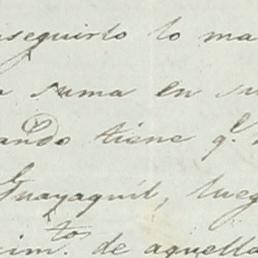 nseguirlo lo ma
suma en su
ando tiene q.e
Guayaquil, lueg
cim.tos de aquella